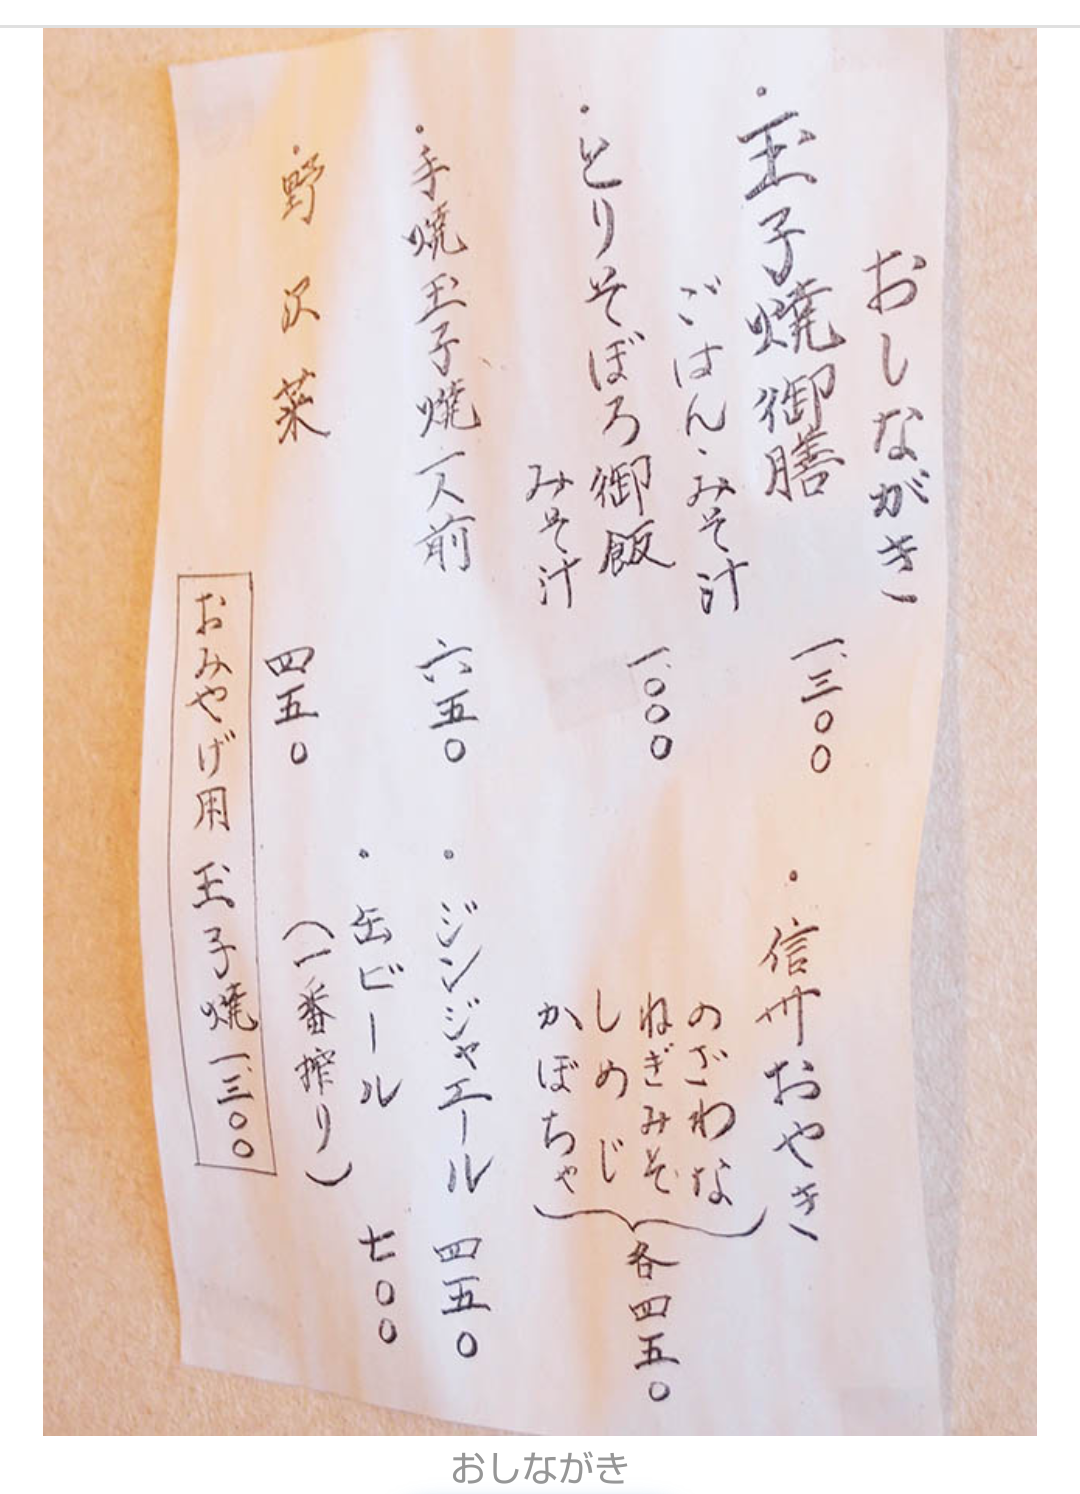 おしながき
・玉子焼御膳
ごはん・みそ汁
一、三〇〇
・とりそぼろ御飯
みそ汁
一、〇〇〇
・手焼玉子焼 一人前
六五〇
・野沢菜
四五〇
・信州おやき
のざわな
ねぎみそ
しめじ
かぼちゃ
各四五〇
・ジンジャエール 四五〇
・缶ビール 七〇〇
(一番搾り)
おみやげ用 玉子焼 一、三〇〇
おしながき